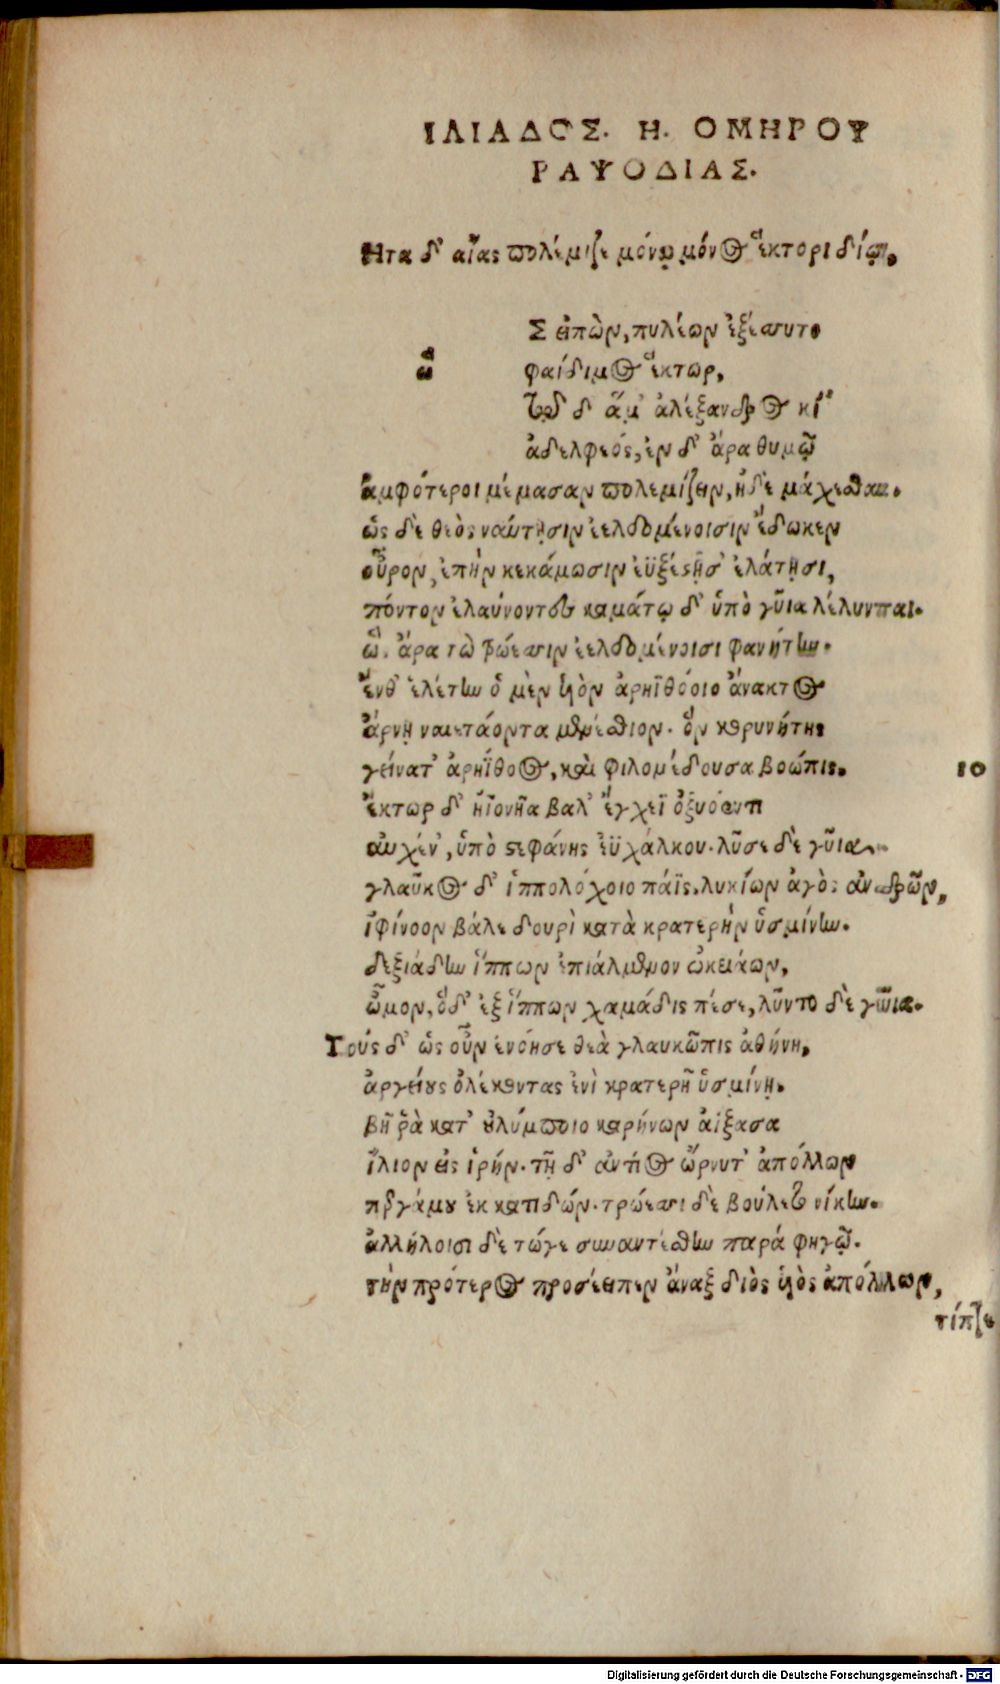 ΙΛΙΑΔΟΣ. Η. ΟΜΗΡΟΥ
ΡΑΨΟΔΙΑΣ.
Ητα δ' αἴας πολέμιζε μόνῳ μόνος ἕκτορι δίῳ,
ὣ
Σ εἰπὼν, πυλέων ἐξέσσυτο
φαίδιμος ἕκτωρ,
Τῷ δ' ἅμ' ἀλέξανδρος κί'
ἀδελφεός, ἐν δ' ἄρα θυμῷ
ἀμφότεροι μέμασαν πολεμίζειν, ἠδὲ μάχεσθαι.
ὡς δὲ θεὸς ναύτῃσιν ἐελδομένοισιν ἔδωκεν
οὖρον, ἐπὴν κεκάμωσιν ἐϋξέστῃσ' ἐλάτῃσι,
πόντον ἐλαύνοντες καμάτῳ δ' ὑπὸ γῦια λέλυνται.
ὣς ἄρα τὼ τρώεσσιν ἐελδομένοισι φανήτην.
ἔνθ' ἑλέτην ὁ μὲν ὑὸν ἀρηϊθόοιο ἄνακτος
ἄρνῃ ναιετάοντα μενέσθιον. ὃν κορυνήτης
γείνατ' ἀρηΐθοος, καὶ φιλομέδουσα βοώπις.
10
ἕκτωρ δ' ἠϊονῆα βαλ' ἔγχεϊ ὀξυόεντι
αὐχέν', ὑπὸ στεφάνης ἐϋχάλκου. λῦσε δὲ γῦια.
γλαῦκος δ' ἱππολόχοιο πάϊς, λυκίων ἀγὸς ἀνδρῶν,
ἰφίνοον βάλε δουρὶ κατὰ κρατερὴν ὑσμίνην.
δεξιάδην ἵππων ἐπιάλμενον ὠκειάων,
ὦμον, ὁδ' ἐξ ἵππων χαμάδις πέσε, λῦντο δὲ γῦια.
Τοὺς δ' ὡς οὖν ἐνόησε θεὰ γλαυκῶπις ἀθήνη,
ἀργείους ὀλέκοντας ἐνὶ κρατερῇ ὑσμίνῃ.
βῆ ῥὰ κατ' οὐλύμποιο καρήνων ἀίξασα
ἴλιον εἰς ἱρήν. τῇ δ' ἀντίος ὤρνυτ' ἀπόλλων
περγάμου ἐκ κατιδών. τρώεσσι δὲ βούλετο νίκην.
ἀλλήλοισι δὲ τώγε συναντέσθην παρά φηγῷ.
τὴν πρότερος προσέειπεν ἄναξ διὸς ὑὸς ἀπόλλων,
τίπτε
Digitalisierung gefördert durch die Deutsche Forschungsgemeinschaft - DFG